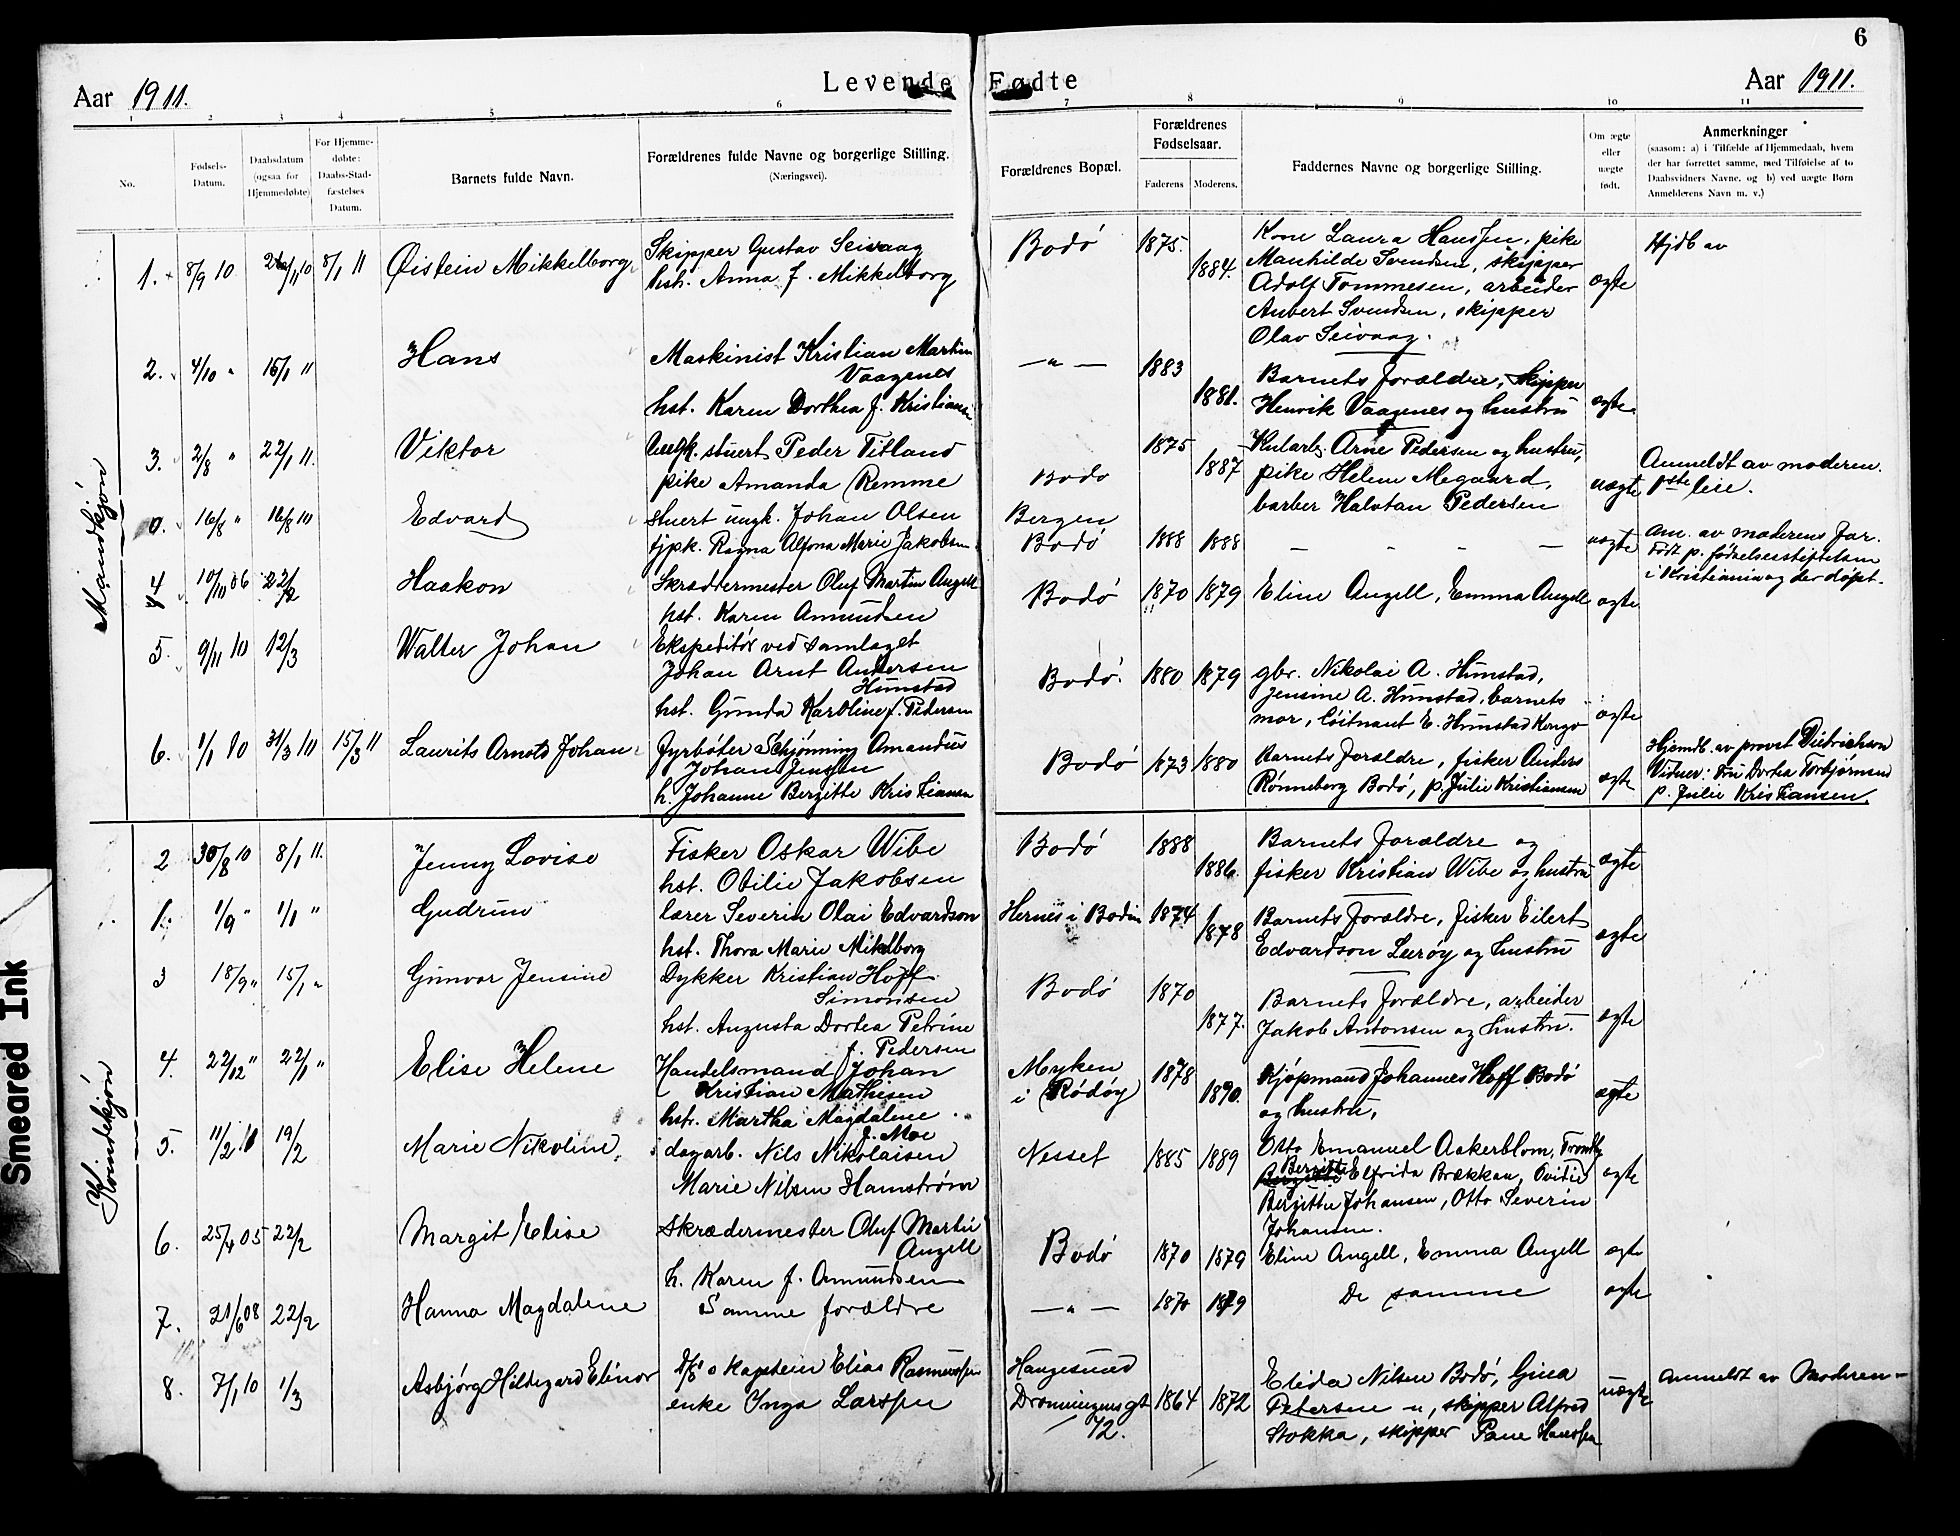 6
Levende Fødte
Aar 1911.
Aar 1911.
1 2 3 4 5 6 7 8 9 10 11
No.
Fødsels-Datum.
Daabsdatum (ogsaa for Hjemmedøbte)
For Hjemme-døbte: Daabs-Stad-fæstelses Datum.
Barnets fulde Navn.
Forældrenes fulde Navne og borgerlige Stilling.
(Næringsvei).
Forældrenes Bopæl.
Forældrenes Fødselsaar.
Faderens Moderens.
Faddernes Navne og borgerlige Stilling.
Om ægte eller uægte født.
Anmerkninger
(saasom: a) i Tilfælde af Hjemmedaab, hvem
der har forrettet samme, med Tilføielse af to
Daabsvidners Navne, og b) ved uægte Børn
Anmelderens Navn m. v.)
Mandkjøn
1. 8/9 10 26/11 10 8/1 11 Øistein Mikkelborg
Skipper Gustav Seivaag
hst. Anna f. Mikkelborg
Bodó 1875. 1884.
Kone Laura Hanssen, pike
Manhilde Svendsen, skipper
Adolf Tommesen, arbeider
Anbert Svendsen, skipper
Olav Seivaag.
ægte
Hjdb av
2. 4/10 " 15/1 " Hans
Maskinist Kristian Martin
Vaagenes
hst. Karen Dorthea f. Kristiansen
— " — 1883 1881.
Barnets forældre, skipper
Henrik Vaagenes og hustru
ægte
3. 2/8 " 22/1 11. Viktor
Ungk. stuert Peder Titland
pike Amanda Remme
Bodo 1875 1887
Kularb. Arne Pedersen og hustru,
pike Helene Megaard,
barber Halvtan Pedersen
uægte
Anmeldt av moderen.
1ste leie.
0. 16/8 " 16/8 10 Edvard
Stuert ungk. Johan Olsen
tjpk. Ragna Alfona Marie Jakobsen
Bergen
Bodó 1888 1888 — - - —
uægte
Am. av moderens far.
Født p. fødselsstiftelsen
i Kristiania og der døpt.
4 10/11 06 22/2 Haakon
Skræddermester Oluf Martin Angell
hst. Karen Amundsen
Bodó 1870 1879 Eline Angell, Emma Angell ægte
5. 9/11 10 12/3 Walter Johan
Ekspeditór ved Samlaget
Johan Arnt Andersen
Hunstad
hst. Gunda Karoline f. Pedersen
Bodó. 1880 1879
gbr. Nikolai A. Hunstad,
Jensine A. Hunstad, barnets
mor, lóitnant E. Hunstad Kongo
ægte
6. 1/1 10 31/3 10 15/3 11 Laurits Arnold Johan
Fyrbóter Schjønning Amandus
Johan Jensen
h. Johanne Bergitte Kristiansen
Bodó 1873 1880
Barnets forældre, fisker Anders
Rønneberg Bodó, p. Julie Kristiansen
ægte
Hjemdb. av provst Dietrichson
Vidner: Fru Dortea Torbjørnsen
p. Julie Kristiansen.
Kvindekjón
2 30/8 10 8/1 11. Jenny Lovise
Fisker Oskar Wibe
hst. Otilie Jakobsen
Bodó 1888 1886.
Barnets forældre og
fisker Kristian Wibe og hustru
ægte
1. 1/9 " 1/1 " Gudrun
lærer Severin Olai Edvardson
hst. Thora Marie Mikelborg
Hernes i Bodin 1874 1878
Barnets forældre, fisker Eilert
Edvardson Lurøy og hustru
ægte
3 18/9 " 15/1 " Gunvor Jensine
Dykker Kristian Hoff
Simonsen
hst. Augusta Dortea Petrine
f. Pedersen
Bodó 1870 1877.
Barnets forældre, arbeider
Jakob Antonsen og hustru.
ægte
4. 22/12 " 22/1 " Elise Helene
Handelsmand Johan
Kristian Mathisen
hst. Martha Magdalene
f. Moe
Myken
i Rødøy 1878 1890.
Kjópmand Johannes Hoff Bodó
og hustru,
ægte
5. 11/2 10 19/2 Marie Nikoline
dagarb. Nils Nikolaisen
Marie Nilsen Hamstrøm
Nesset 1885 1889
Otto Emanuel Aakerblom,
Bergitte Elfrida Brækkan, Ovidie
Bergitte Johansen, Otto Severin
Johansen.
ægte
6. 25/4 05 22/2 Margit Elise
Skrædermester Oluf Martin
Angell
h. Karen f. Amundsen
Bodó 1870 1879 Eline Angell, Emma Angell ægte
7. 21/6 08 22/2 Hanna Magdalene Samme forældre — " — 1870 1879 De samme ægte
8. 7/1 10 1/3 Asbjórg Hildegard Elinor
D/S o kaptein Elias Rasmussen
enke Inga Larssen
Haugesund
Dronningensgt
72. 1864 1872
Elida Nilsen Bodó, Gina
Petersen ", skipper Alfred
Stokka, skipper Hanssen
uægte
anmeldt av Moderen
Smeared Ink